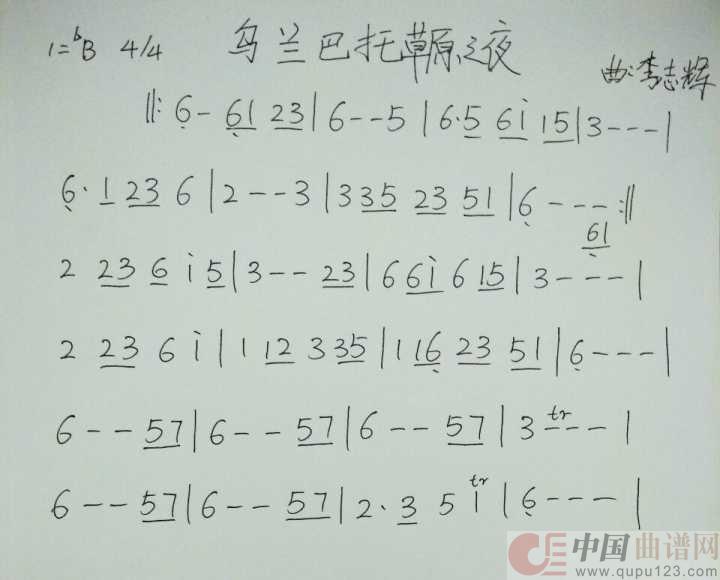 1=ᵇB 4/4 乌兰巴托草原之夜
曲:李志辉
‖: 6̣ - 6̣1 23 | 6 - - 5 | 6·5 6i 15 | 3 - - - |
6̣· 1 23 6 | 2 - - 3 | 3 35 23 51 | 6̣ - - - :‖
6̣1
2 23 6 i 5 | 3 - - 23 | 6 6i 6 15 | 3 - - - |
2 23 6 i | 1 12 3 35 | 1 16̣ 23 51 | 6̣ - - - |
6 - - 57 | 6 - - 57 | 6 - - 57 | 3 tr - - - |
6 - - 57 | 6 - - 57 | 2· 3 5 tr 1 | 6̣ - - - |
中国曲谱网
www.qupu123.com